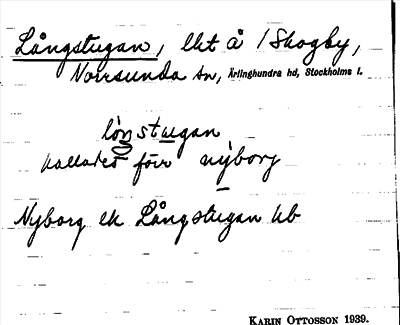 Långstugan, lht å / Skogby,
Norrsunda sn, Ärlinghundra hd, Stockholms l.
lòn̥stugan
kallades förr nýborj
Nyborg el Långstugan hb
KARIN OTTOSSON 1939.